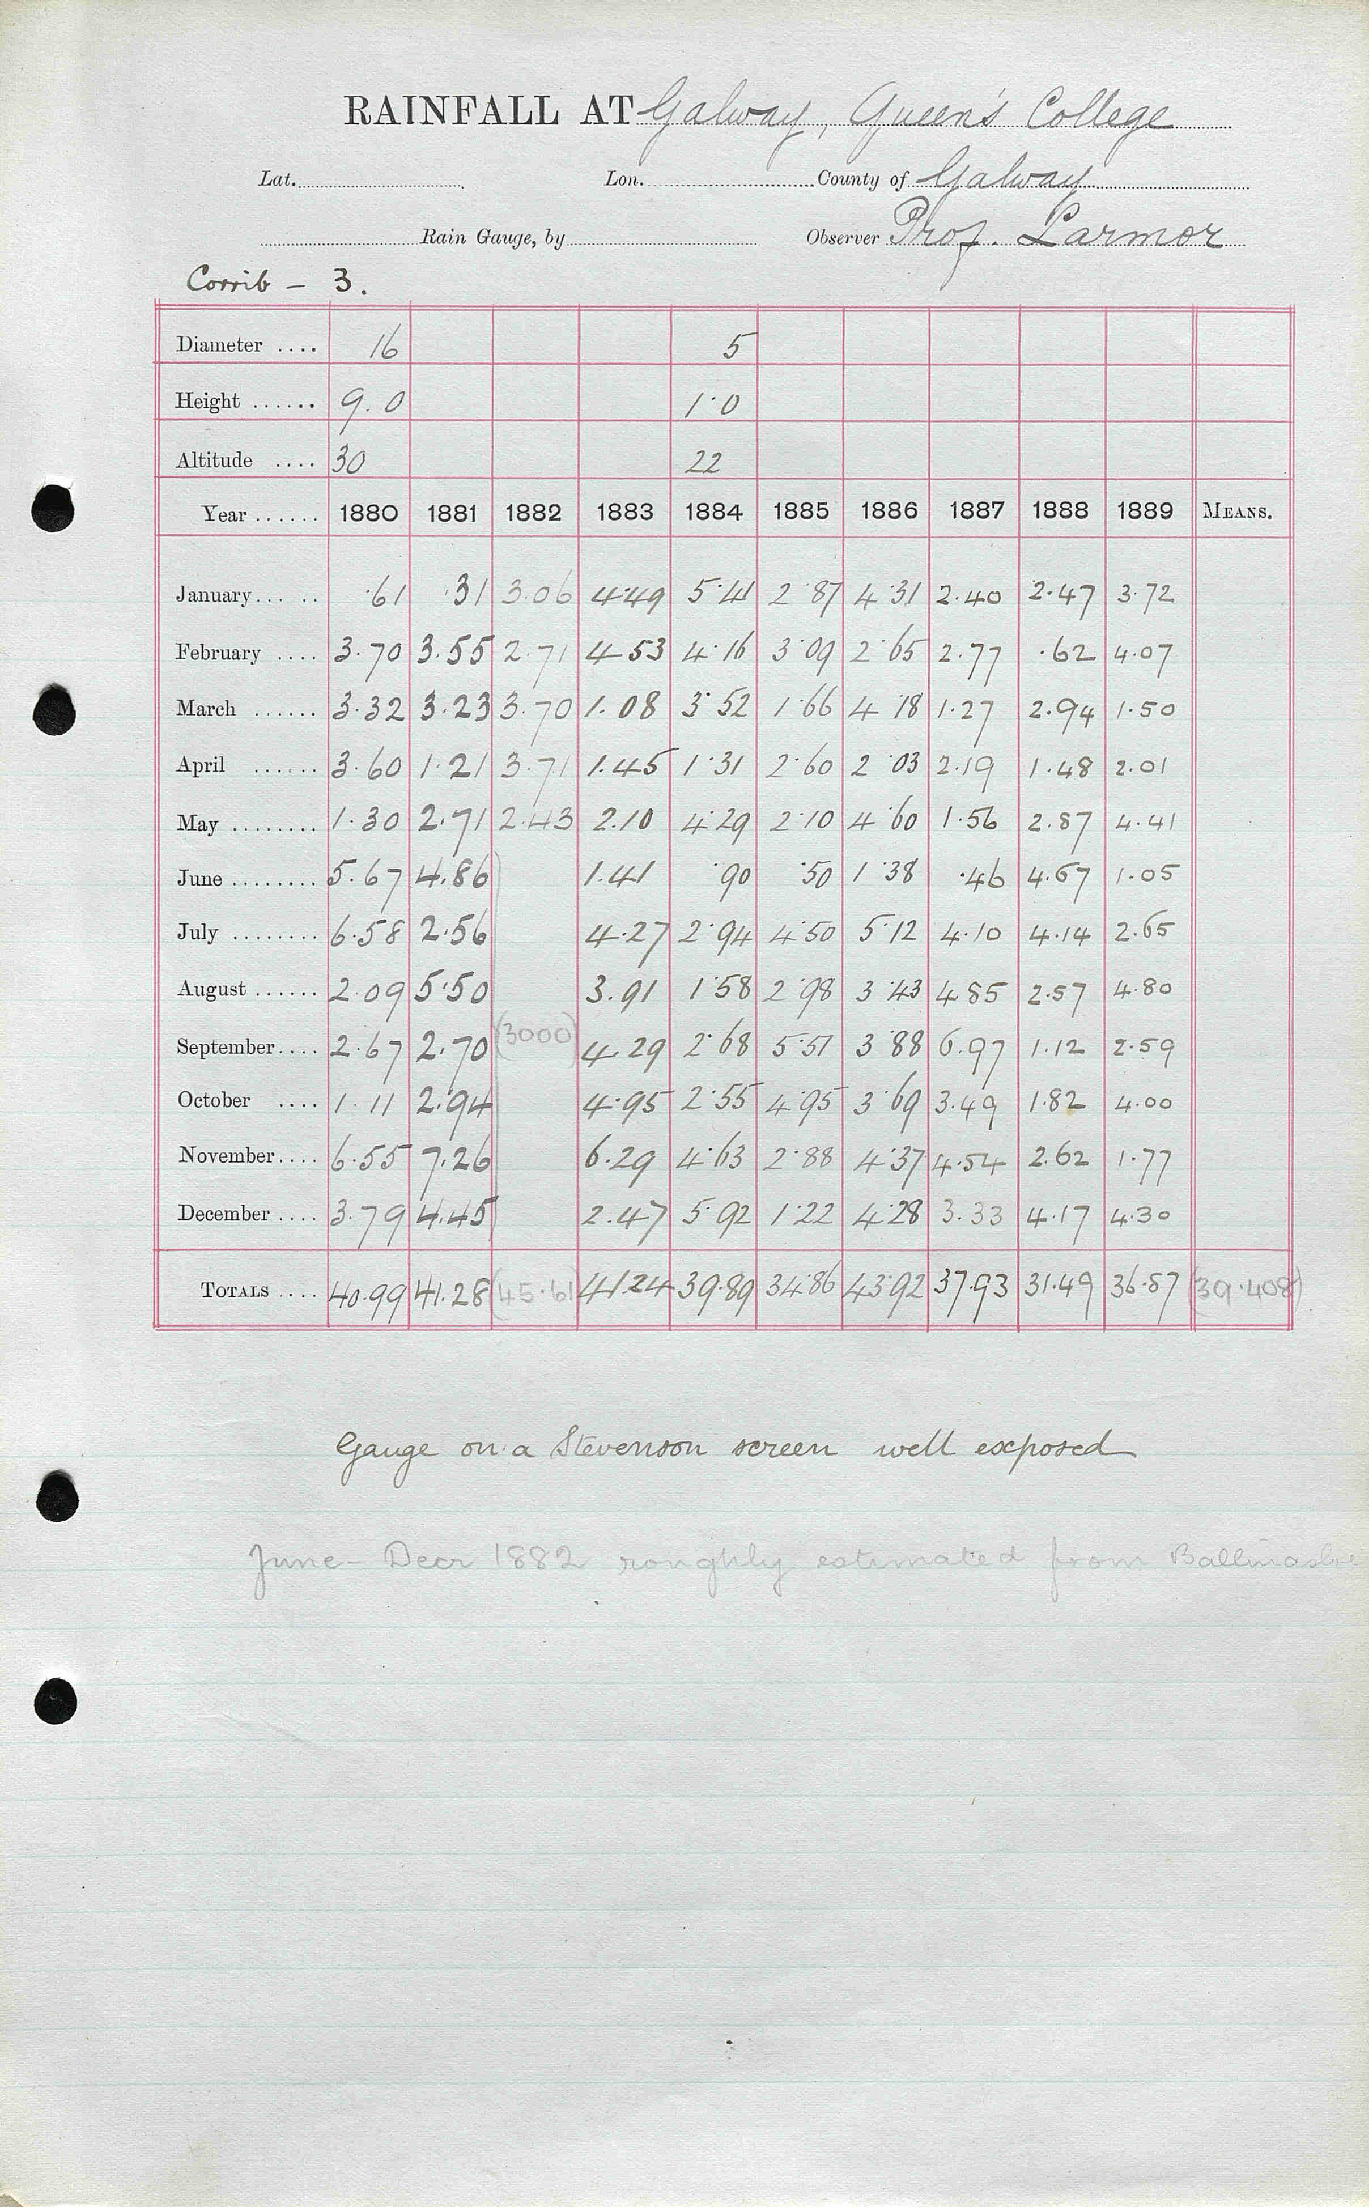 RAINFALL AT Galway, Queen's College
Lat. Lon. County of Galway
Rain Gauge, by Observer Prof. Larmor
Corrib - 3.
Diameter .... 16 5
Height ...... 9.0 1.0
Altitude .... 30 22
Year ...... 1880 1881 1882 1883 1884 1885 1886 1887 1888 1889 MEANS.
January ..... .61 .31 3.06 4.49 5.41 2.87 4.31 2.40 2.47 3.72
February .... 3.70 3.55 2.71 4.53 4.16 3.09 2.65 2.77 .62 4.07
March ...... 3.32 3.23 3.70 1.08 3.52 1.66 4.18 1.27 2.94 1.50
April ...... 3.60 1.21 3.71 1.45 1.31 2.60 2.03 2.19 1.48 2.01
May ........ 1.30 2.71 2.43 2.10 4.29 2.10 4.60 1.56 2.87 4.41
June ........ 5.67 4.86 1.41 .90 .50 1.38 .46 4.67 1.05
July ........ 6.58 2.56 4.27 2.94 4.50 5.12 4.10 4.14 2.65
August ...... 2.09 5.50 3.91 1.58 2.98 3.43 4.85 2.57 4.80
September.... 2.67 2.70 (3000) 4.29 2.68 5.51 3.88 6.97 1.12 2.59
October .... 1.11 2.94 4.95 2.55 4.95 3.69 3.49 1.82 4.00
November.... 6.55 7.26 6.29 4.63 2.88 4.37 4.54 2.62 1.77
December .... 3.79 4.45 2.47 5.92 1.22 4.28 3.33 4.17 4.30
TOTALS .... 40.99 41.28 (45.61) 41.24 39.89 34.86 43.92 37.93 31.49 36.87 (39.408)
Gauge on a Stevenson screen well exposed
June - Decr 1882 roughly estimated from